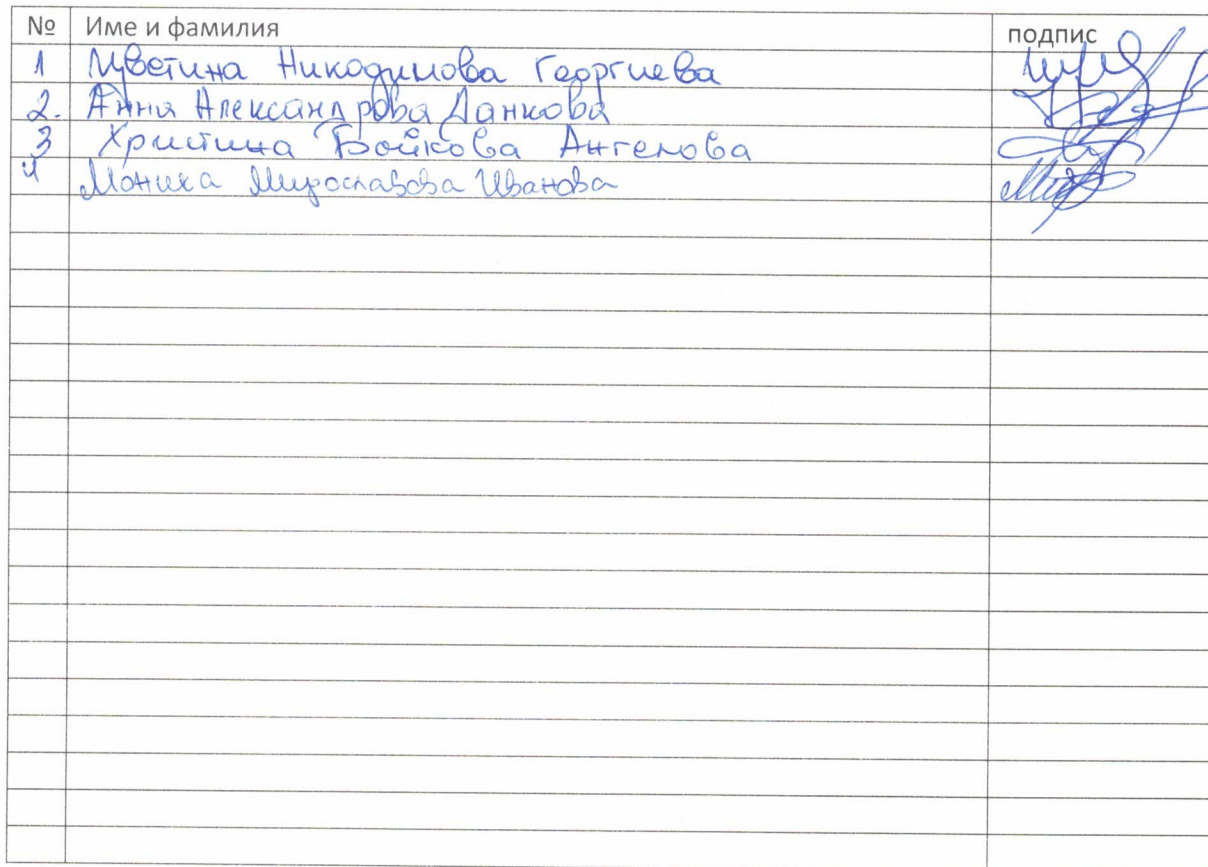 № Име и фамилия подпис
1 Цветина Никодимова Георгиева
2. Анна Александрова Данкова
3 Христина Бойкова Ангелова
4 Моника Мирославова Иванова